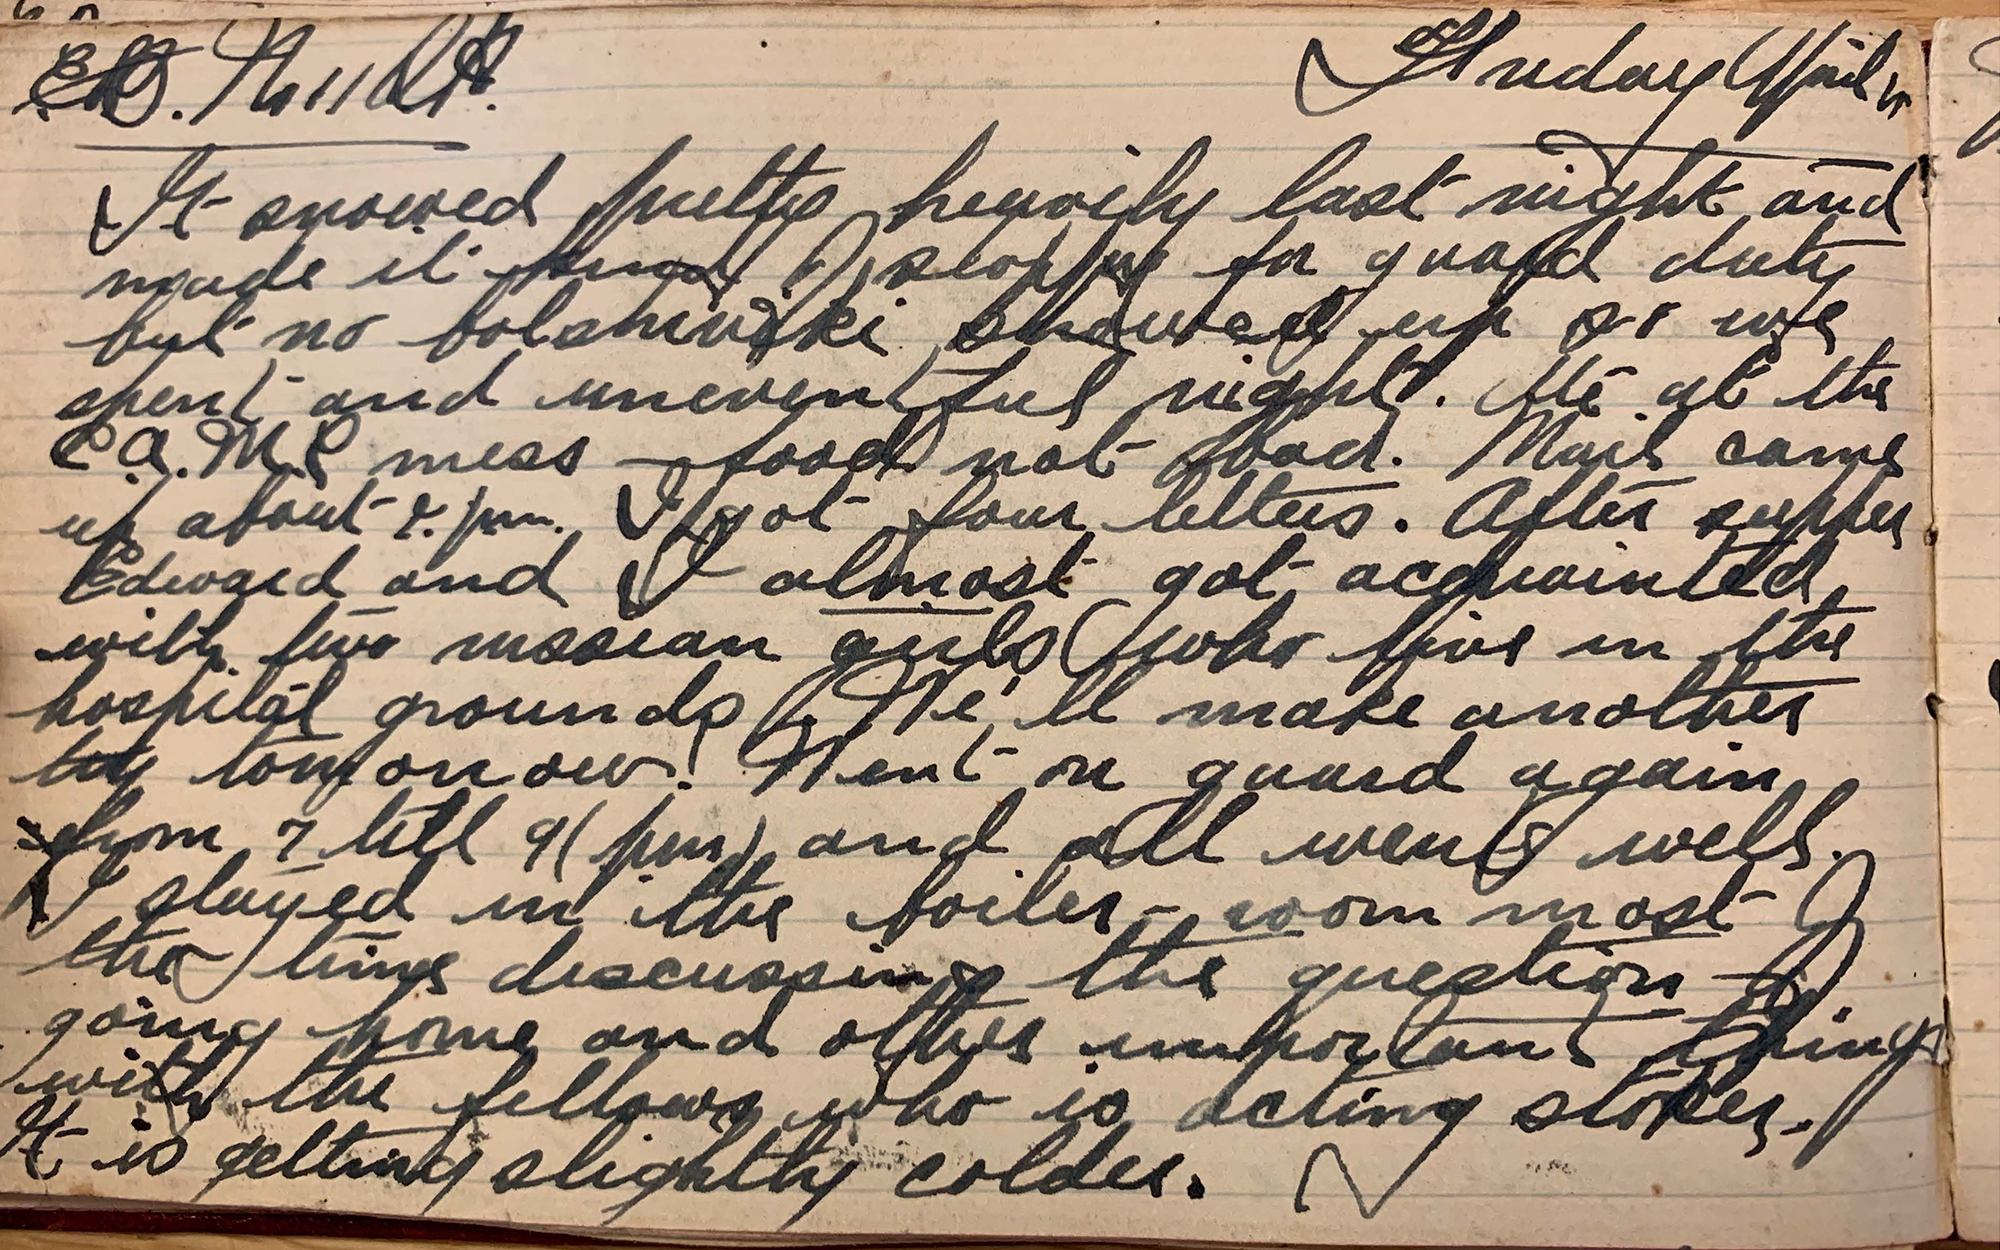 Friday April
It snowed pretty heavily last night and
made it kind of sloppy for guard duty
but no bolshiviki showed up so we
spent and uneventful night. Ate at the
C.A.M.C mess – food not bad. Mail came
up about 2. pm. I got four letters. After supper
Edward and I almost got acquainted
with two russian girls who live in the
hospital grounds. We'll make another
try tomorrow! Went on guard again
from 7 till 9 (pm) and all went well.
I stayed in the boiler-room most of
the time discussing the question of
going home and other important things
with the fellows who is acting stoker.
It is getting slightly colder.